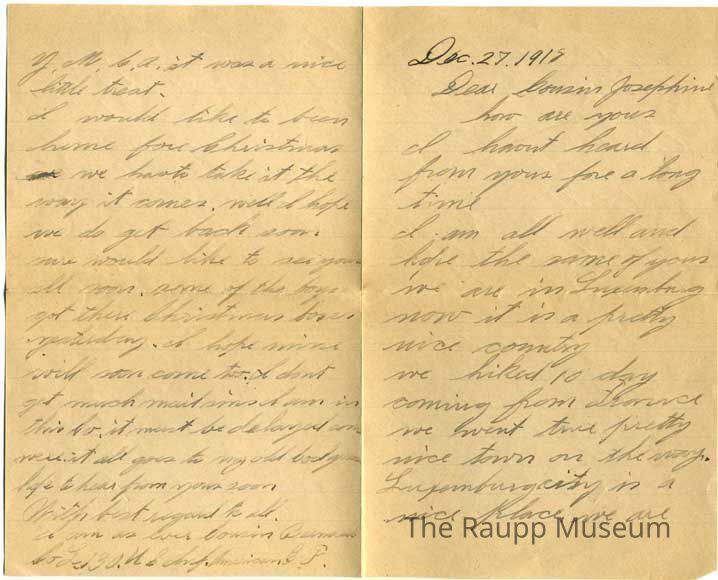 Dec. 27. 1918
Dear Cousin Josephine
how are yous
I havnt heard
from yous fore a long
time
I am all well and
hope the same of yous
we are in Luxemburg
now it is a pretty
nice country
we hiked 10 day
coming from France
we went true pretty
nice town on the way.
Luxemburg city is a
nice place we are
Y. M. C. A. it was a nice
little treat.
I would like to been
home fore Christmas
we hasto take it the
way it comes. well I hope
we do get back soon.
we would like to see yous
all soon. some of the boys
got there Christmas boxes
yesterday. I hope mine
will come to. I dont
get much mail since I am in
this Co. it must be delayed som
were it all goes to my old
life to hear from yous soon
With best regard to all.
I am as ever Cousin
Co. 130. U S Inf. American. E. F.
The Raupp Museum